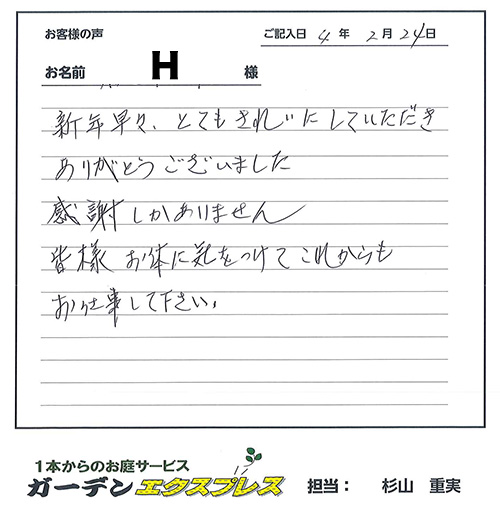 お客様の声
ご記入日 4 年 2 月 24 日
お名前 H 様
新年早々、とてもきれいにしていただき
ありがとうございました
感謝しかありません
皆様 お体に気をつけてこれからも
お仕事して下さい。
1本からのお庭サービス
ガーデンエクスプレス 担当： 杉山 重実